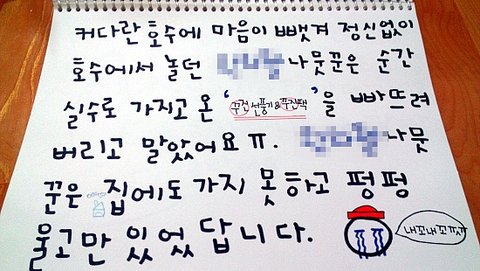 커다란 호수에 마음이 빼겨 정신없이
호수에서 놀던 나뭇꾼은 순간
실수로 가지고 온 '무선 선풍기&무선팩'을 빠뜨려
버리고 말았어요ㅠ. 나뭇
꾼은 집에도 가지 못하고 펑펑
울고만 있었답니다.
내꼬내꼬ㅠㅠ